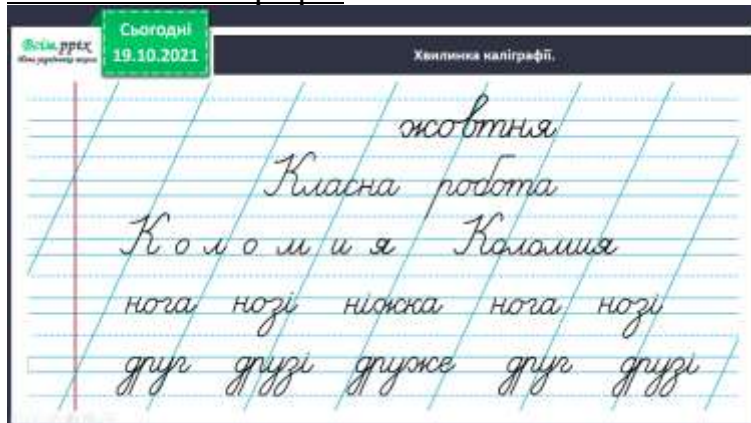 Всім.pptx
Сьогодні
19.10.2021
Хвилинка каліграфії.
жовтня
Класна робота
К о л о м и я Коломия
нога нозі ніжка нога нозі
друг друзі друже друг друзі